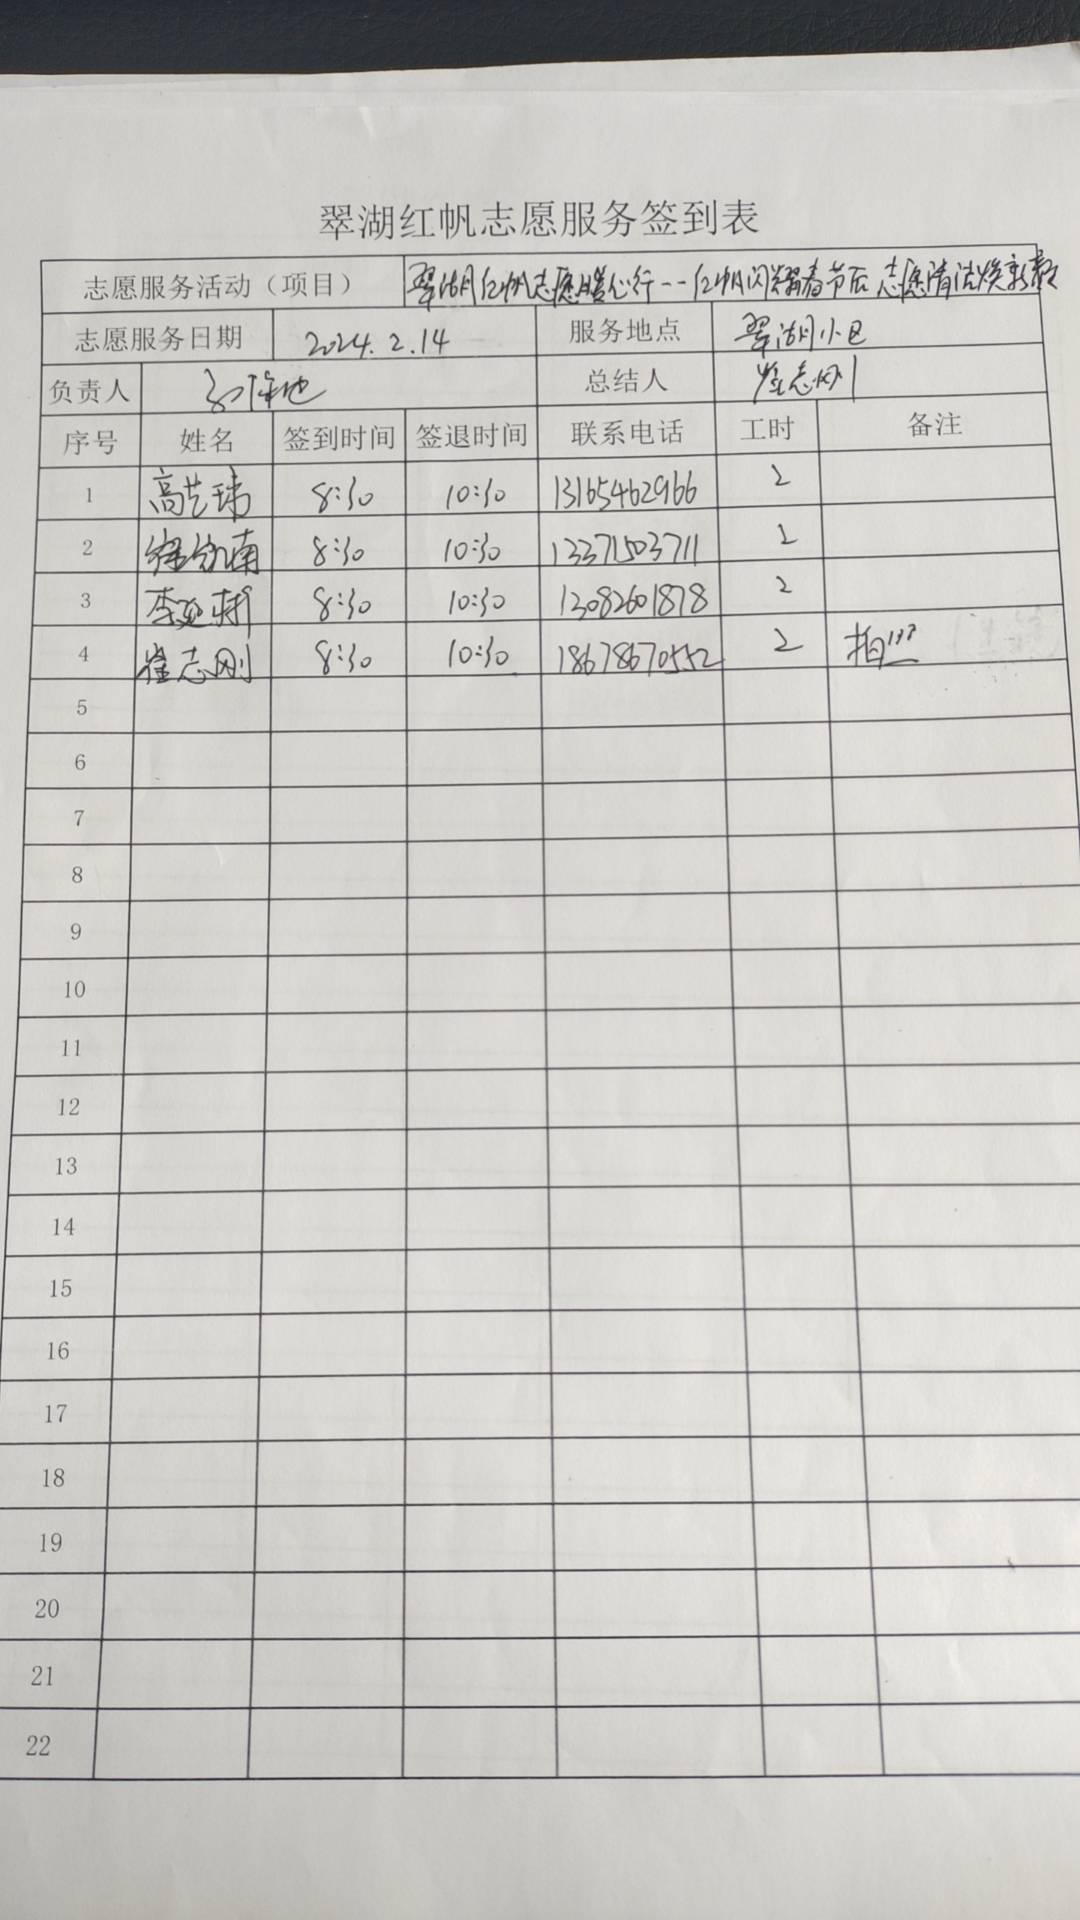 翠湖红帆志愿服务签到表
志愿服务活动（项目） 翠湖红帆志愿暖心行--红帆闪耀春节后 志愿清洁焕新颜
志愿服务日期 2024.2.14 服务地点 翠湖小区
负责人 总结人 崔志刚
序号 姓名 签到时间 签退时间 联系电话 工时 备注
1 高艺玮 8:30 10:30 13165462966 2
2 8:30 10:30 13371503711 2
3 李延彬 8:30 10:30 13082601878 2
4 崔志刚 8:30 10:30 18678670552 2 拍照
5
6
7
8
9
10
11
12
13
14
15
16
17
18
19
20
21
22